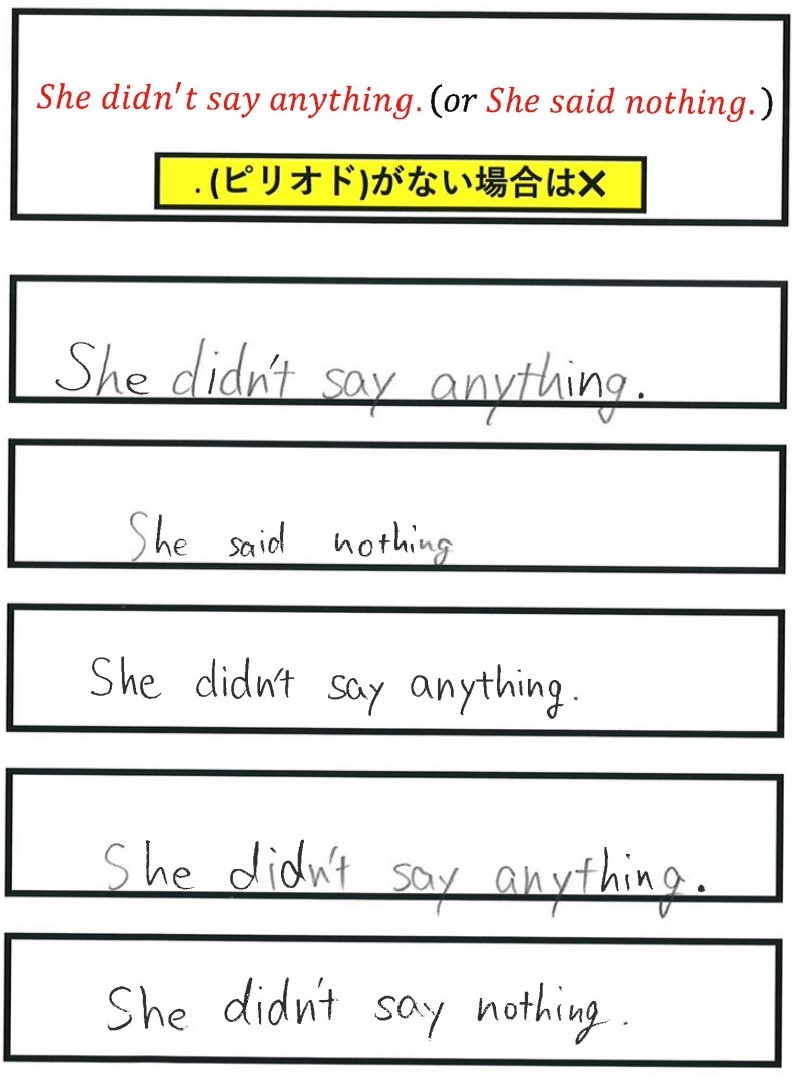 She didn't say anything. (or She said nothing.)
. (ピリオド)がない場合は×
She didn't say anything.
She said nothing
She didn't say anything.
She didn't say anything.
She didn't say nothing.